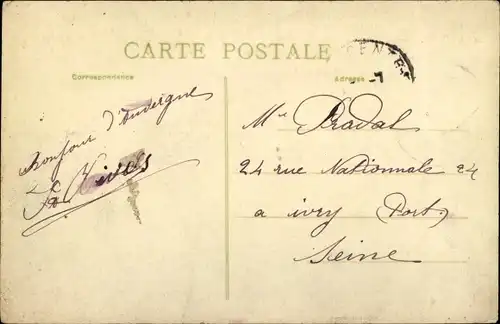 CARTE POSTALE
Correspondance
Adresse
Bonjour d'Auvergne
Mr Pradal
24 rue Nationnale 24
a ivry (Port)
Seine